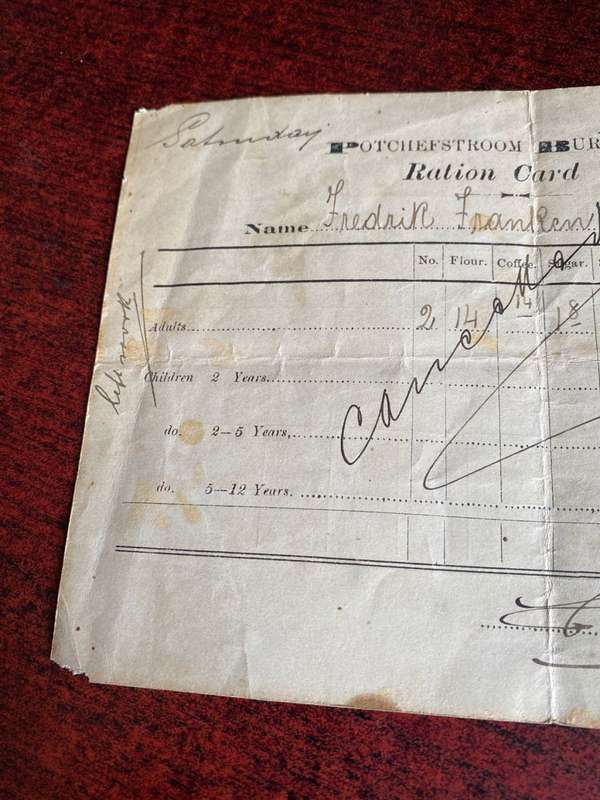 Saturday
POTCHEFSTROOM BUR
Ration Card
Name Fredrik Franken
No. Flour. Coffee. Sugar.
Adults 2 14 14 18
Children 2 Years.
do. 2—5 Years,
do. 5—12 Years.
Cancelled